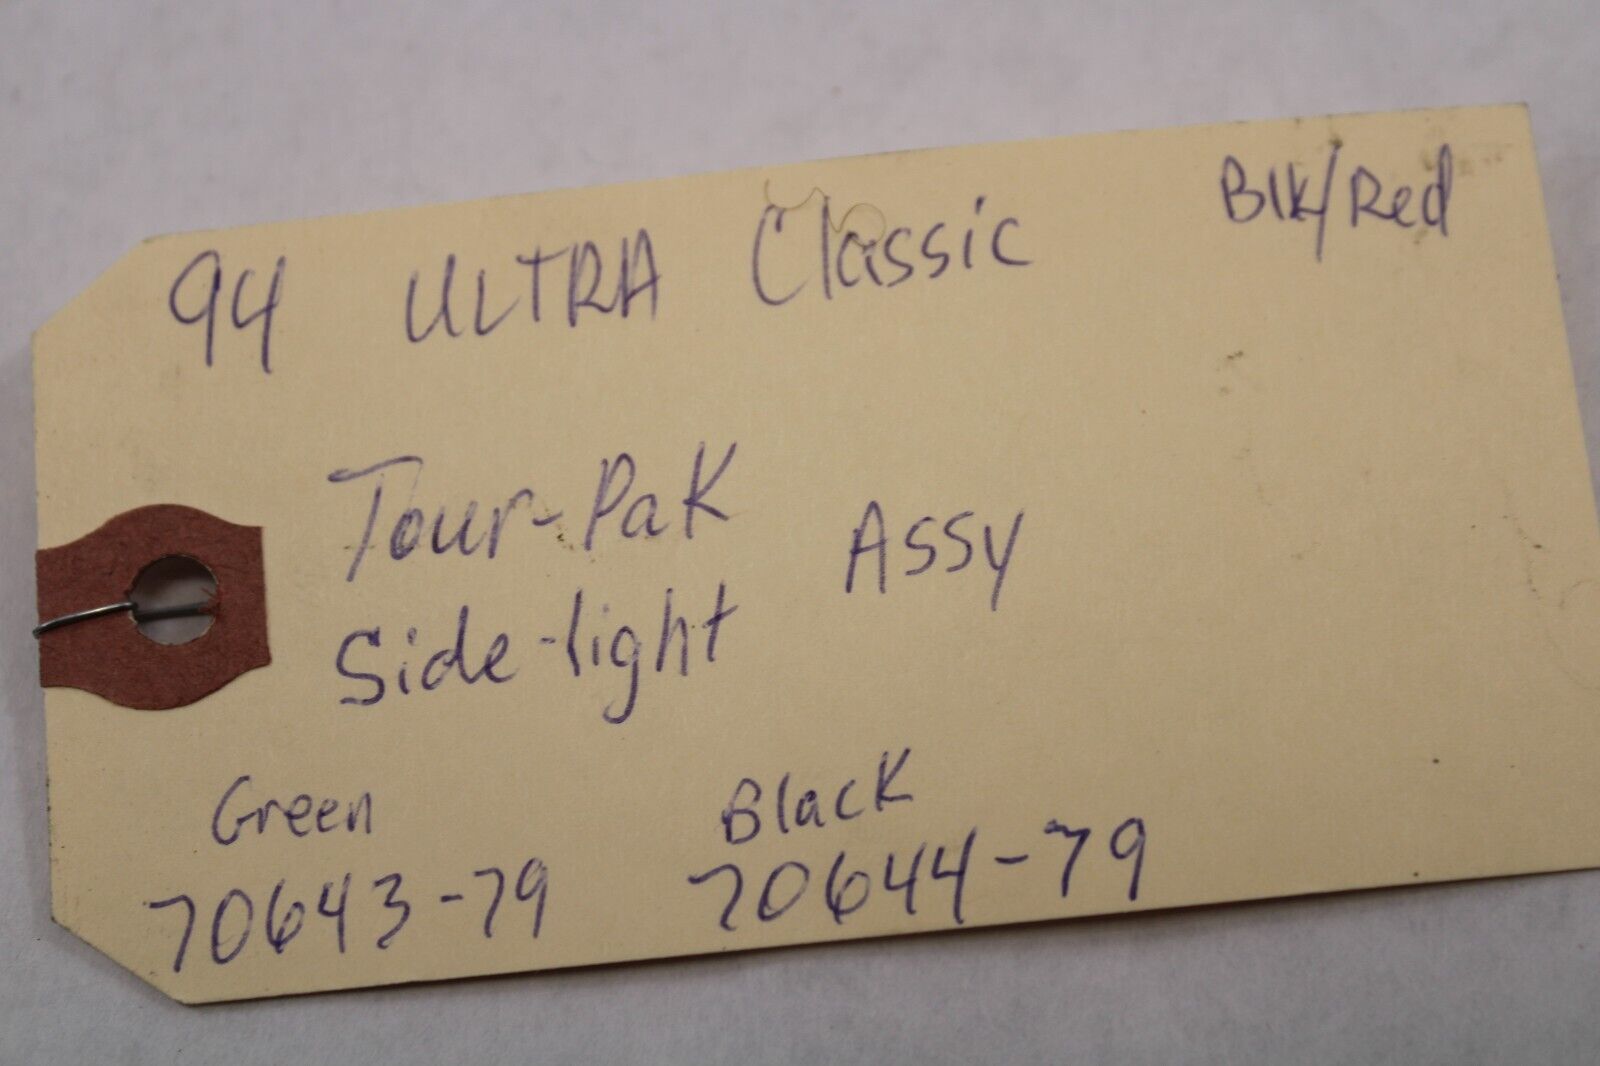 94 ULTRA Classic Blk/Red
Tour-Pak
Side-light Assy
Green Black
70643-79 70644-79